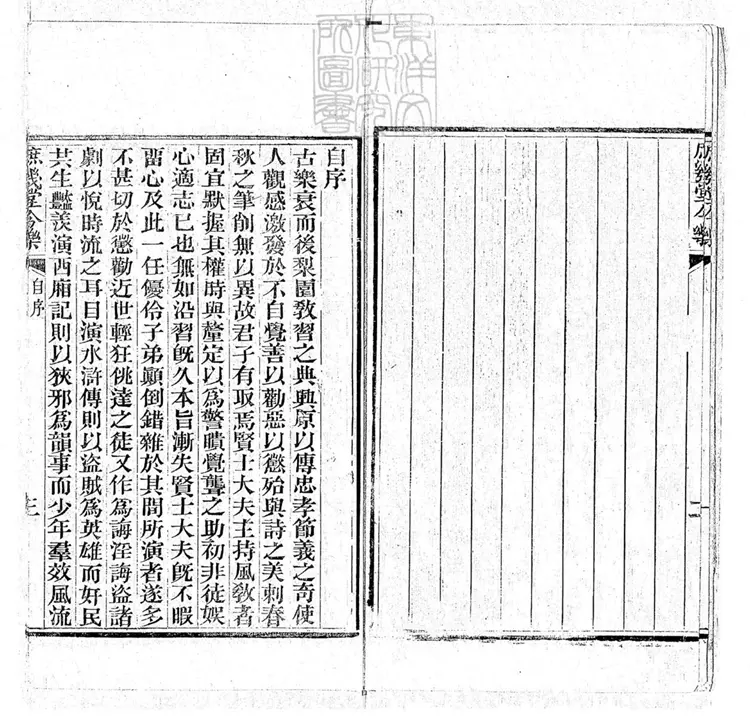 東洋文
化研究
所圖書
庶幾堂今樂
二
自序
古樂衰而後梨園敎習之典興原以傳忠孝節義之奇使
人觀感激發於不自覺善以勸惡以懲殆與詩之美刺春
秋之筆削無以異故君子有取焉賢士大夫主持風敎者
固宜默握其權時與釐定以爲警聵覺聾之助初非徒娛
心適志已也無如沿習旣久本旨漸失賢士大夫旣不暇
畱心及此一任優伶子弟顚倒錯雜於其間所演者遂多
不甚切於懲勸近世輕狂佻達之徒又作爲誨淫誨盜諸
劇以悅時流之耳目演水滸傳則以盜賊爲英雄而奸民
共生豔羨演西廂記則以狹邪爲韻事而少年羣效風流
庶幾堂今樂
自序